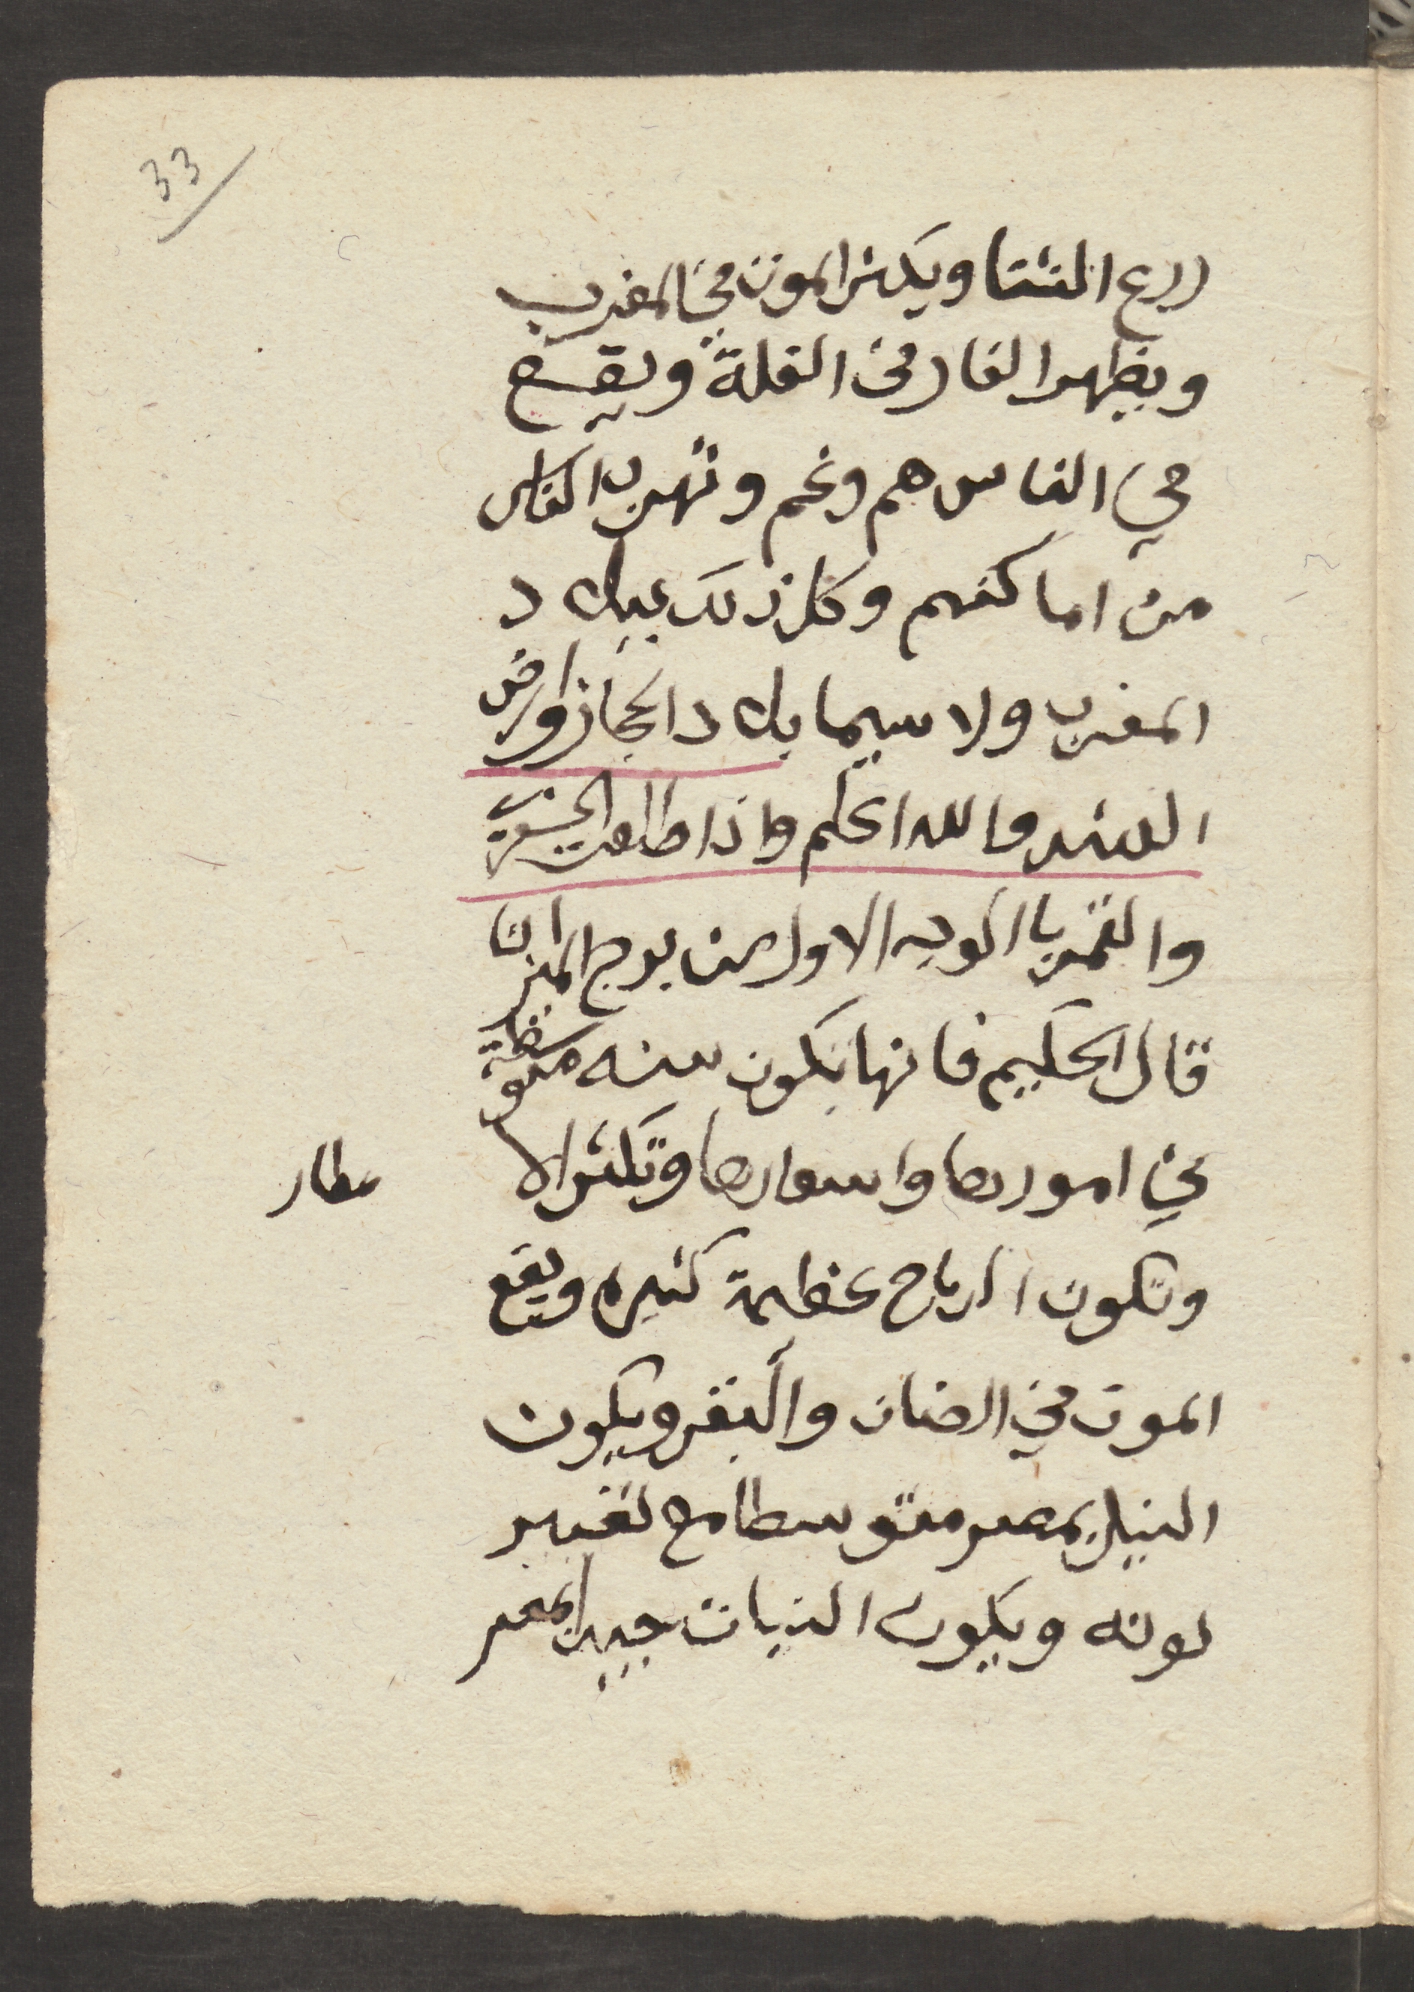 33
زرع الشتا ويكثر الموت في المغرب
ويظهر الفار في الغلة ويقع
في الناس هم وغم وتهرب الناس
من اماكنهم وكل ذلك ببلاد
المغرب ولا سيما بلاد الحجاز وارض
الهند والله اعلم واذا طلعت الشعرى
والقمر با الوجه الاول من برج الميزان
قال الحكيم فانها تكون سنه متوسطة
في امورها واسعارها وتكثر الا مطار
وتكون الارياح عظيمة كثيره ويقع
الموت في الضان والبقر ويكون
النيل بمصر متوسطا مع تغيير
لونه ويكون النبات جيد بمصر